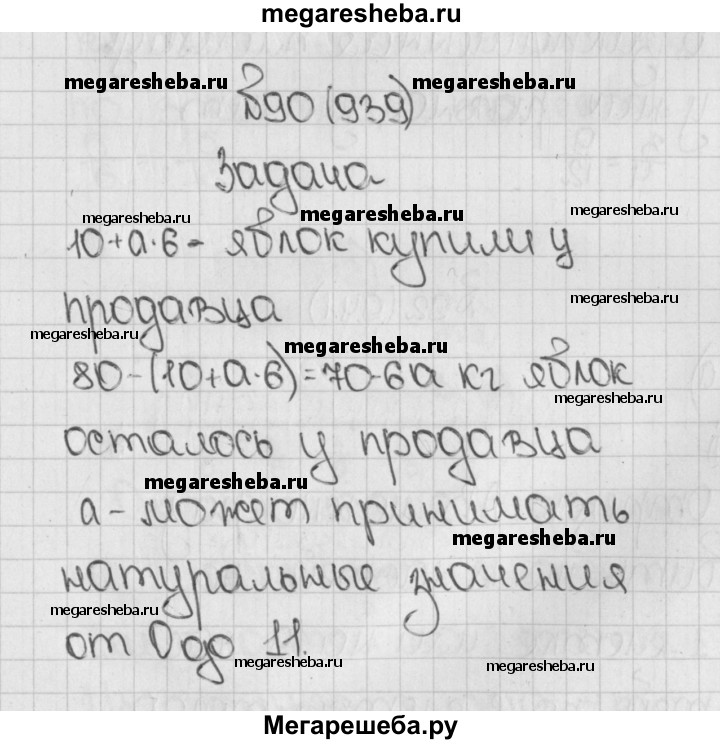 megaresheba.ru
megaresheba.ru
megaresheba.ru
№90 (939)
Задача
megaresheba.ru
megaresheba.ru
megaresheba.ru
10+а·6 - яблок купили у
megaresheba.ru
продавца
megaresheba.ru
megaresheba.ru
80-(10+а·6)=70-6а кг яблок
megaresheba.ru
осталось у продавца
megaresheba.ru
а - может принимать
megaresheba.ru
натуральные значения
megaresheba.ru
от 0 до 11.
megaresheba.ru
megaresheba.ru
Мегарешеба.ру